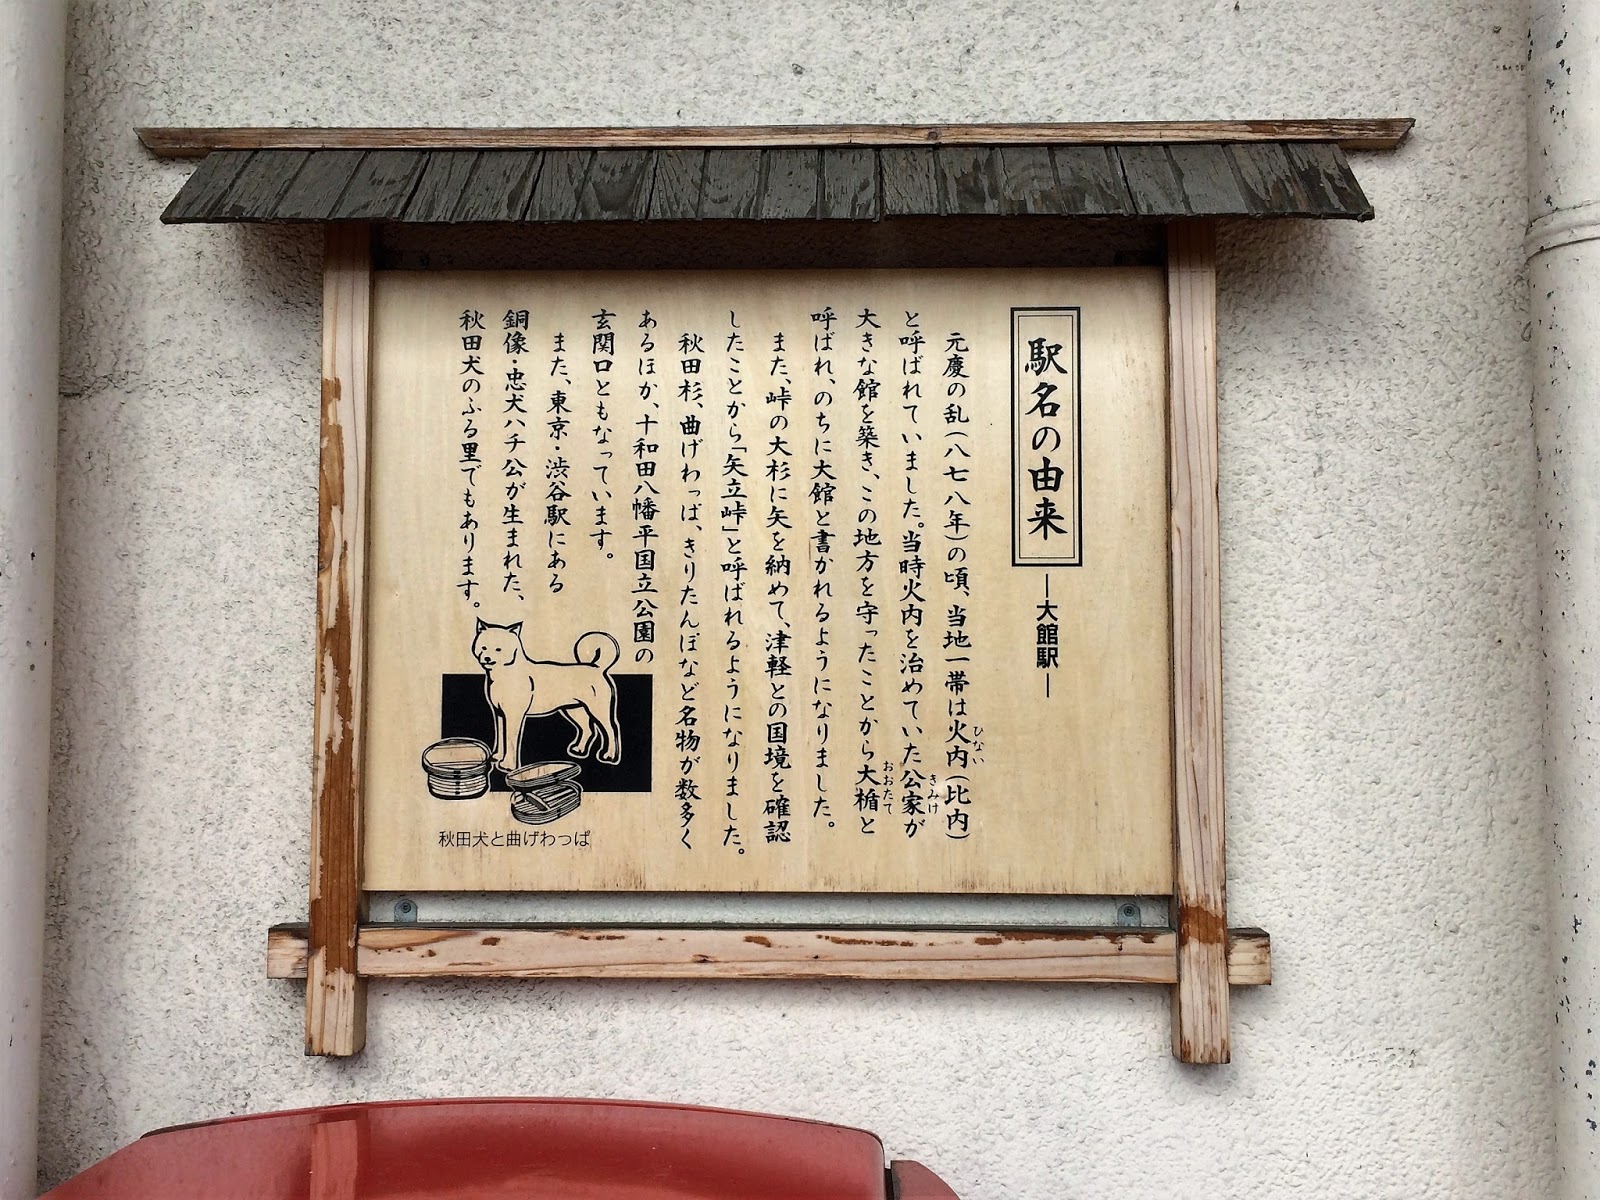 駅名の由来
―大館駅―
元慶の乱(八七八年)の頃、当地一帯は火内(比内)
ひない
と呼ばれていました。当時火内を治めていた公家が
きみけ
大きな館を築き、この地方を守ったことから大楯と
おおたて
呼ばれ、のちに大館と書かれるようになりました。
また、峠の大杉に矢を納めて、津軽との国境を確認
したことから「矢立峠」と呼ばれるようになりました。
秋田杉、曲げわっぱ、きりたんぽなど名物が数多く
あるほか、十和田八幡平国立公園の
玄関口ともなっています。
また、東京・渋谷駅にある
銅像・忠犬ハチ公が生まれた、
秋田犬のふる里でもあります。
秋田犬と曲げわっぱ